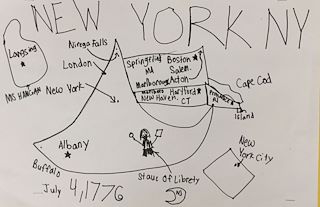 NEW YORK NY
Lansing
MICHAGAN
Nirega Falls
London
New York
Springfield
MA
Boston
Salem
Marlborough
Acton
Hartford
New Haven
CT
Cape Cod
RI
Island
Albany
Buffalo
July 4,1776
Statue Of Librety
NJ
New
York
City